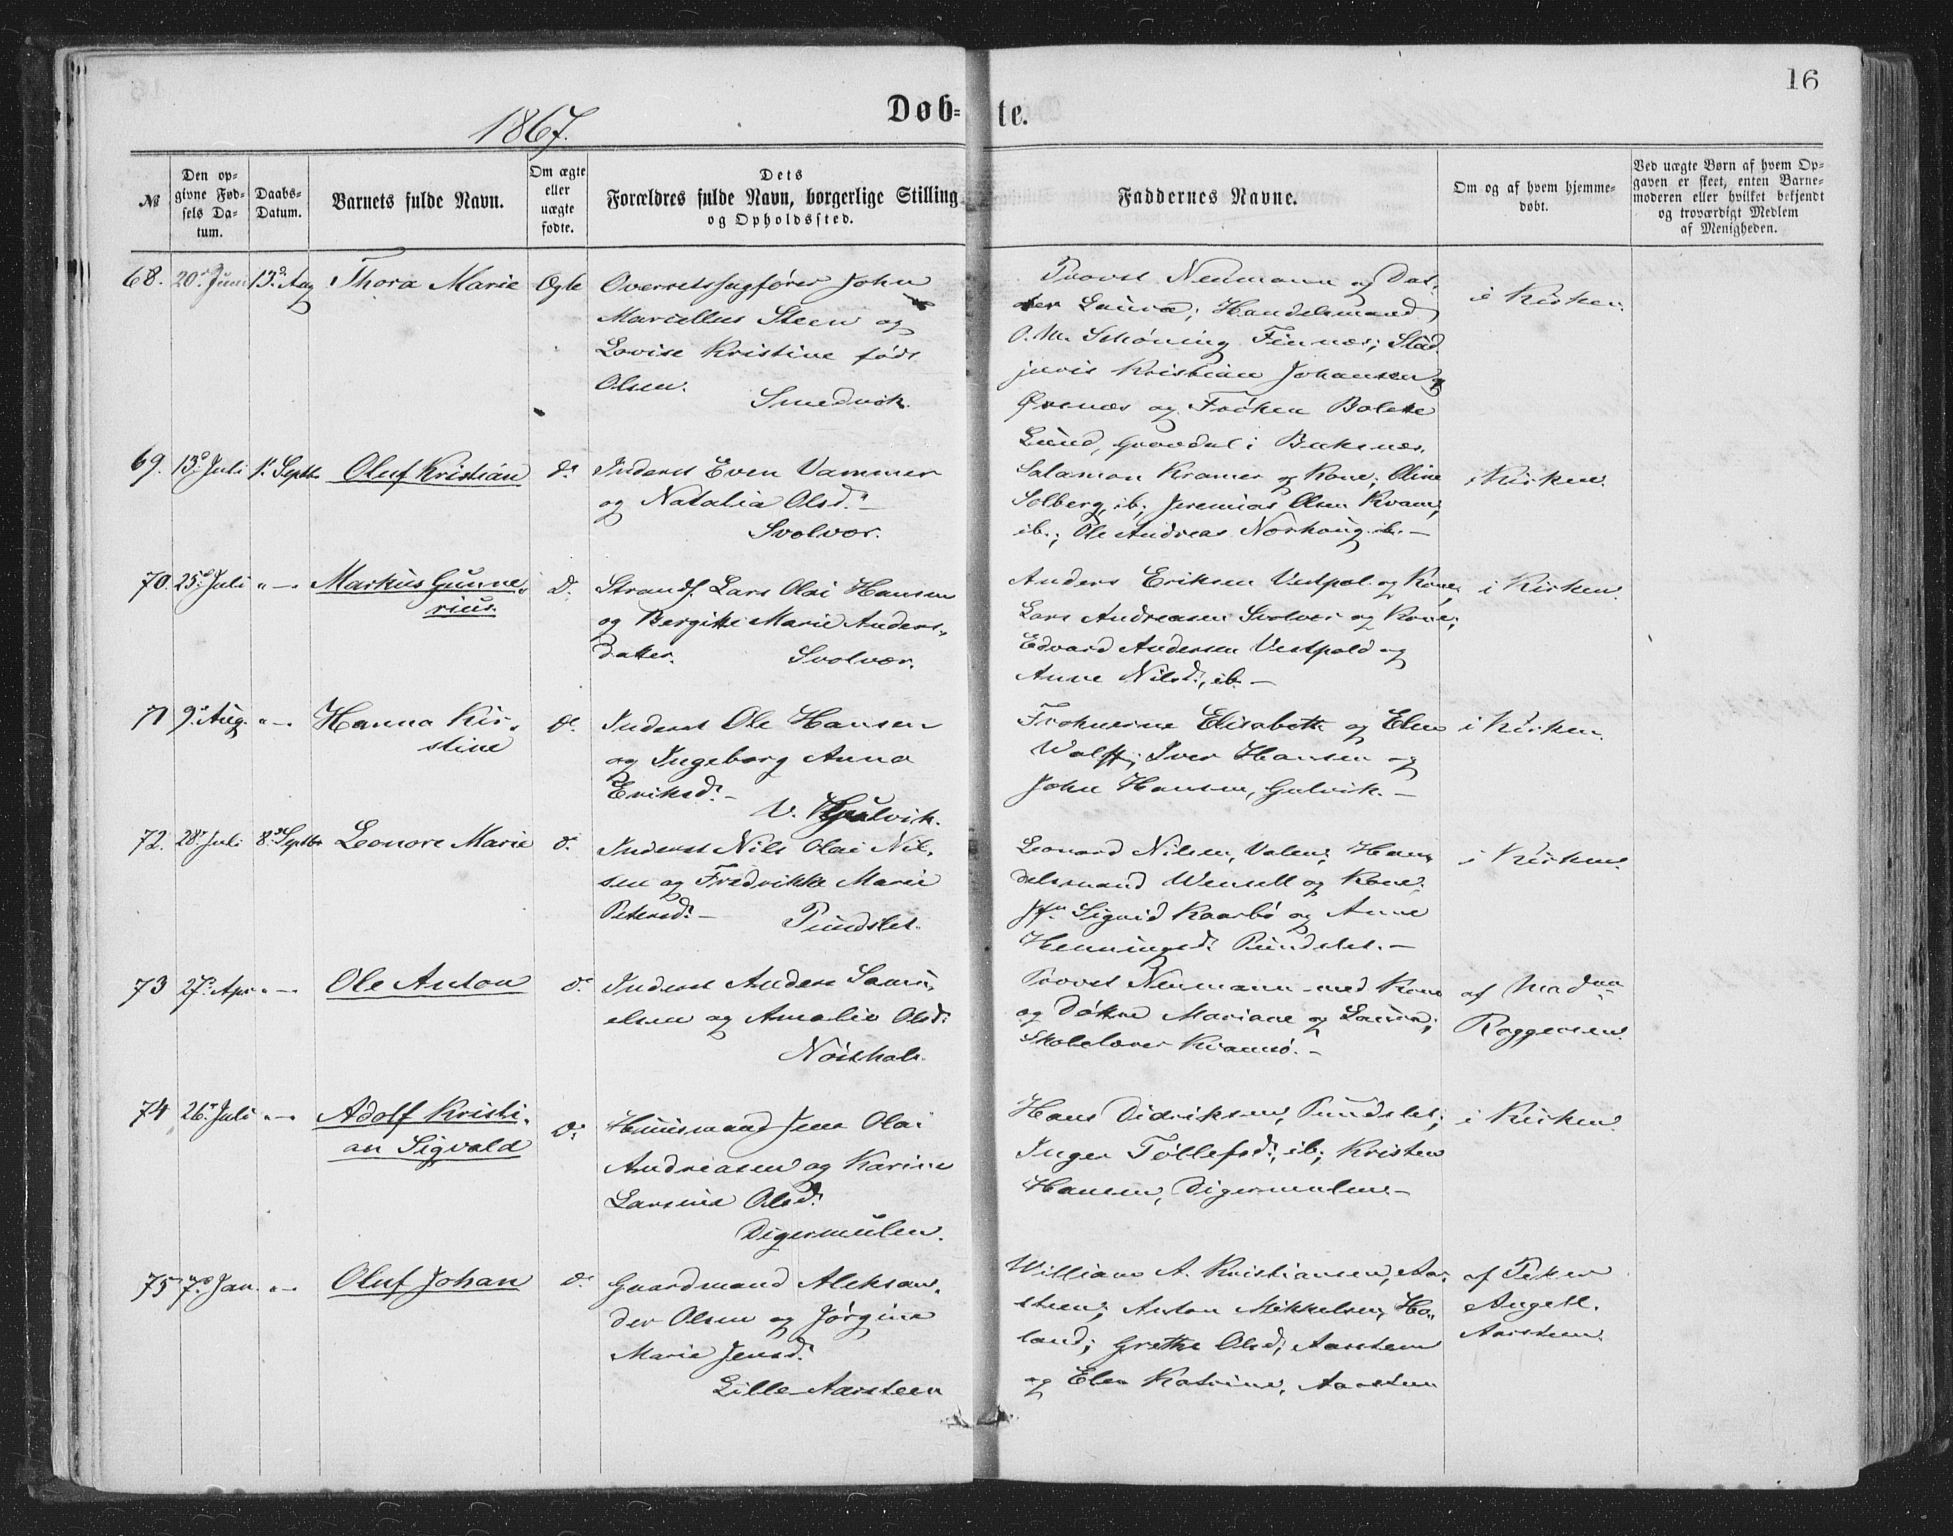 16
1867.
Døb-te.
№
Den op-
givne Fød-
sels Da-
tum.
Daabs-
Datum.
Barnets fulde Navn.
Om ægte
eller
uægte
fødte.
Dets
Forældres fulde Navn, borgerlige Stilling
og Opholdssted.
Faddernes Navne.
Om og af hvem hjemme-
døbt.
Ved uægte Børn af hvem Op-
gaven er skeet, enten Barne-
moderen eller hvilket bekjendt
og troværdigt Medlem
af Menigheden.
68. 20. Juni 13. Aug Thora Marie Ægte
Overretssagfører John
Marcellus Steen og
Lovise Kristine født
Olsen.
Smedvik.
Provst Neumann og Dat-
ter Laura; Handelsmand
O. M. Schøning Finnæs; Stud.
juris Kristian Johansen
Ørsnæs og Frøken Bolette
Lund, Gravdal i Buksnæs.
i Kirken.
69. 13. Juli 1. Septb. Oluf Kristian do
Inderst Even Vammer
og Natalia Olsd. –
Svolvær.
Salamon Kramer og Kone; Oline
Solberg, ib; Jeremias Olsen Kvam,
ib.; Ole Andreas Norhaug ib. –
i Kirken.
70. 25. Juli " – Markus Gunne-
rius. do
Strands. Lars Olai Hansen
og Bergitte Marie Anders-
datter.
Svolvær.
Anders Eriksen Vestpol. og Kone,
Lars Andreasen Svolvær og Kone;
Edvard Andersen Vestpold og
Anne Nilsd., ib. –
i Kirken.
71 9. Aug. " – Hanna Kir-
stine do
Inderst Ole Hansen
og Ingeborg Anna
Eriksd. –
V. Gulvik.
Frøknerne Elisabeth og Elen
Wolff; Iver Hansen og
John Hansen, Gulvik. –
i Kirken.
72. 28. Juli 8. Septbr Leonore Marie do
Inderst Nils Olai Nil-
sen og Fredrikke Marie
Petersd. –
Pundslet.
Leonard Nilsen, Valen; Han-
delsmand Wensell og Kone.
Jfr. Sigrid Kaarbø og Anne
Henningsd. Pundslet. –
i Kirken.
73 27. Apr. " – Ole Anton do
Inderst Anders Samu-
elsen og Amalie Olsd.
Nøsthals.
Provst Neumann med Kone
og Døttre Mariane og Laura;
Skolelærer Kvamsø. –
af Mad
Roggersen.
74 26. Juli " – Adolf Kristi-
an Sigvald do
Huusmand Jens Olai
Andreasen og Karine
Larsine Olsd.
Digermulen.
Hans Didriksen, Pundslet;
Inger Tøllefsd., ib; Kristen
Hansen, Digermulen –
i Kirken.
75 7. Jan. " – Oluf Johan do
Gaardmand Aleksan-
der Olsen og Jørgine
Marie Jensd.
Lille-Aarsteen
William A. Kristiansen, Aar-
steen; Anton Mikkelsen, Ho-
land; Grethe Olsd, Aarsteen
og Elen Katrine, Aarsteen
af Peter
Angell.
Aarsteen.